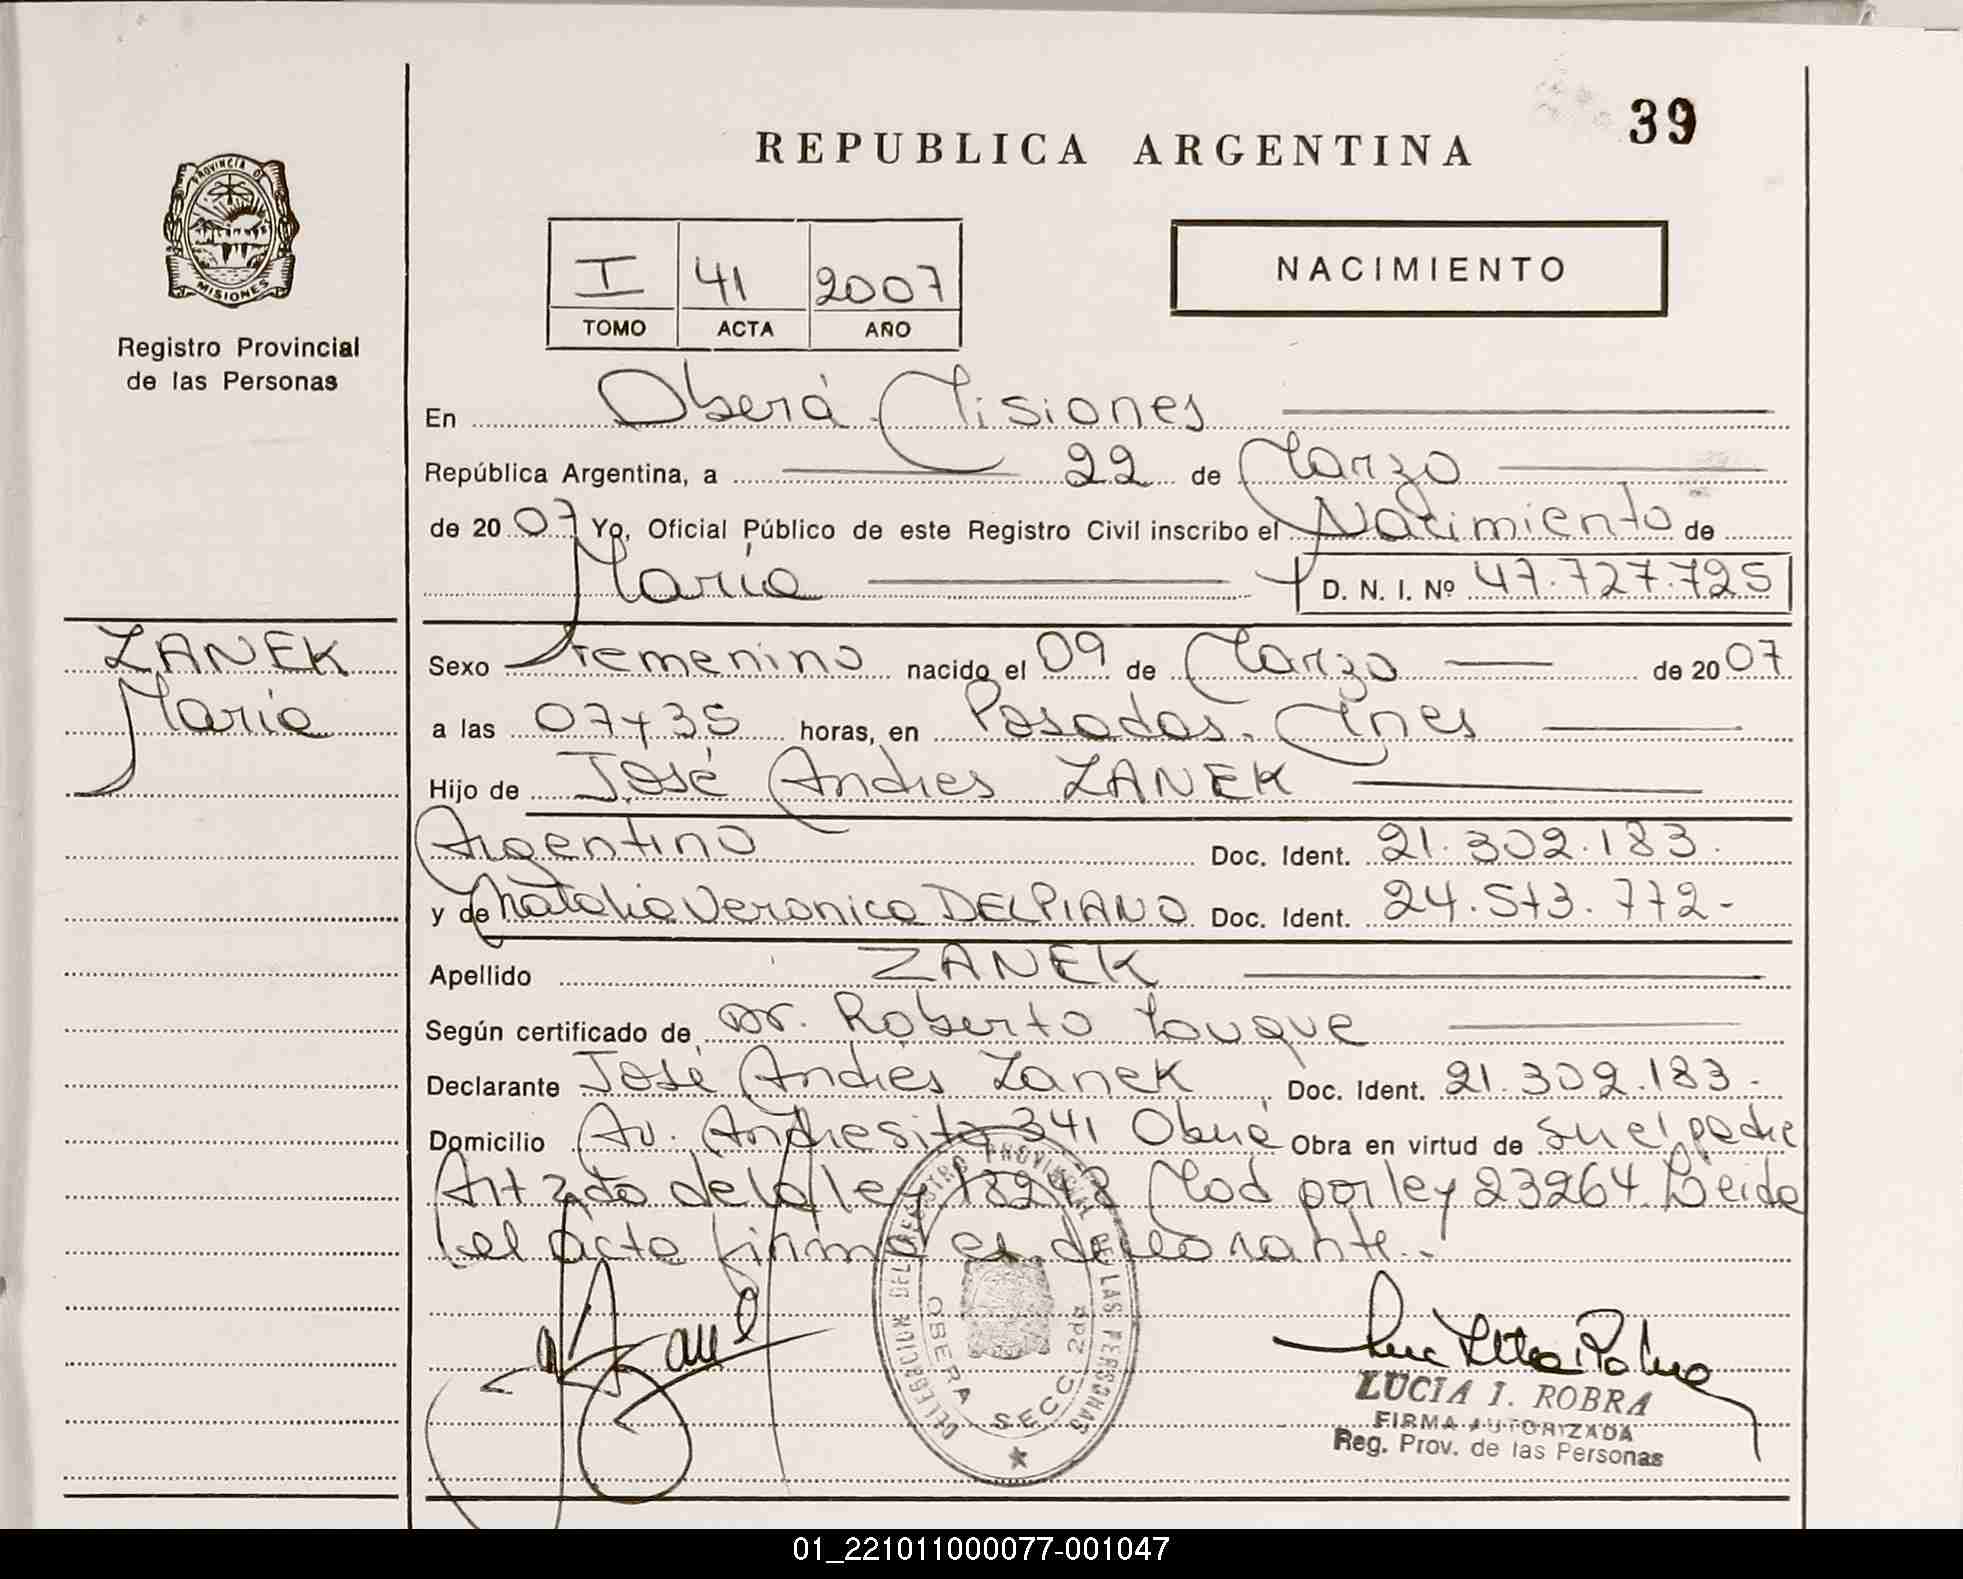 39
REPUBLICA ARGENTINA
PROVINCIA DE
MISIONES
Registro Provincial
de las Personas
I 41 2007
TOMO ACTA AÑO
NACIMIENTO
En Oberá Misiones
República Argentina, a 22 de Marzo
de 2007 Yo, Oficial Público de este Registro Civil inscribo el Nacimiento de
María D. N. I. Nº 47.727.725
ZANEK
María
Sexo Femenino nacido el 09 de Marzo de 2007
a las 07y35 horas, en Posadas. Mnes
Hijo de José Andrés ZANEK
Argentino Doc. Ident. 21.302.183.
y de Natalia Veronica DELPIANO Doc. Ident. 24.573.772-
Apellido ZANEK
Según certificado de Dr. Roberto Luque
Declarante José Andrés Zanek Doc. Ident. 21.302.183.
Domicilio Av. Andresito 341 Oberá Obra en virtud de su el padre
Art 2do de la ley 18248 Mod por ley 23264. Leida
el acta firma el declarante.
DELEGACION DEL REGISTRO PROVINCIAL DE LAS PERSONAS
OBERA SECC 2da
LUCIA I. ROBRA
FIRMA AUTORIZADA
Reg. Prov. de las Personas
01_221011000077-001047